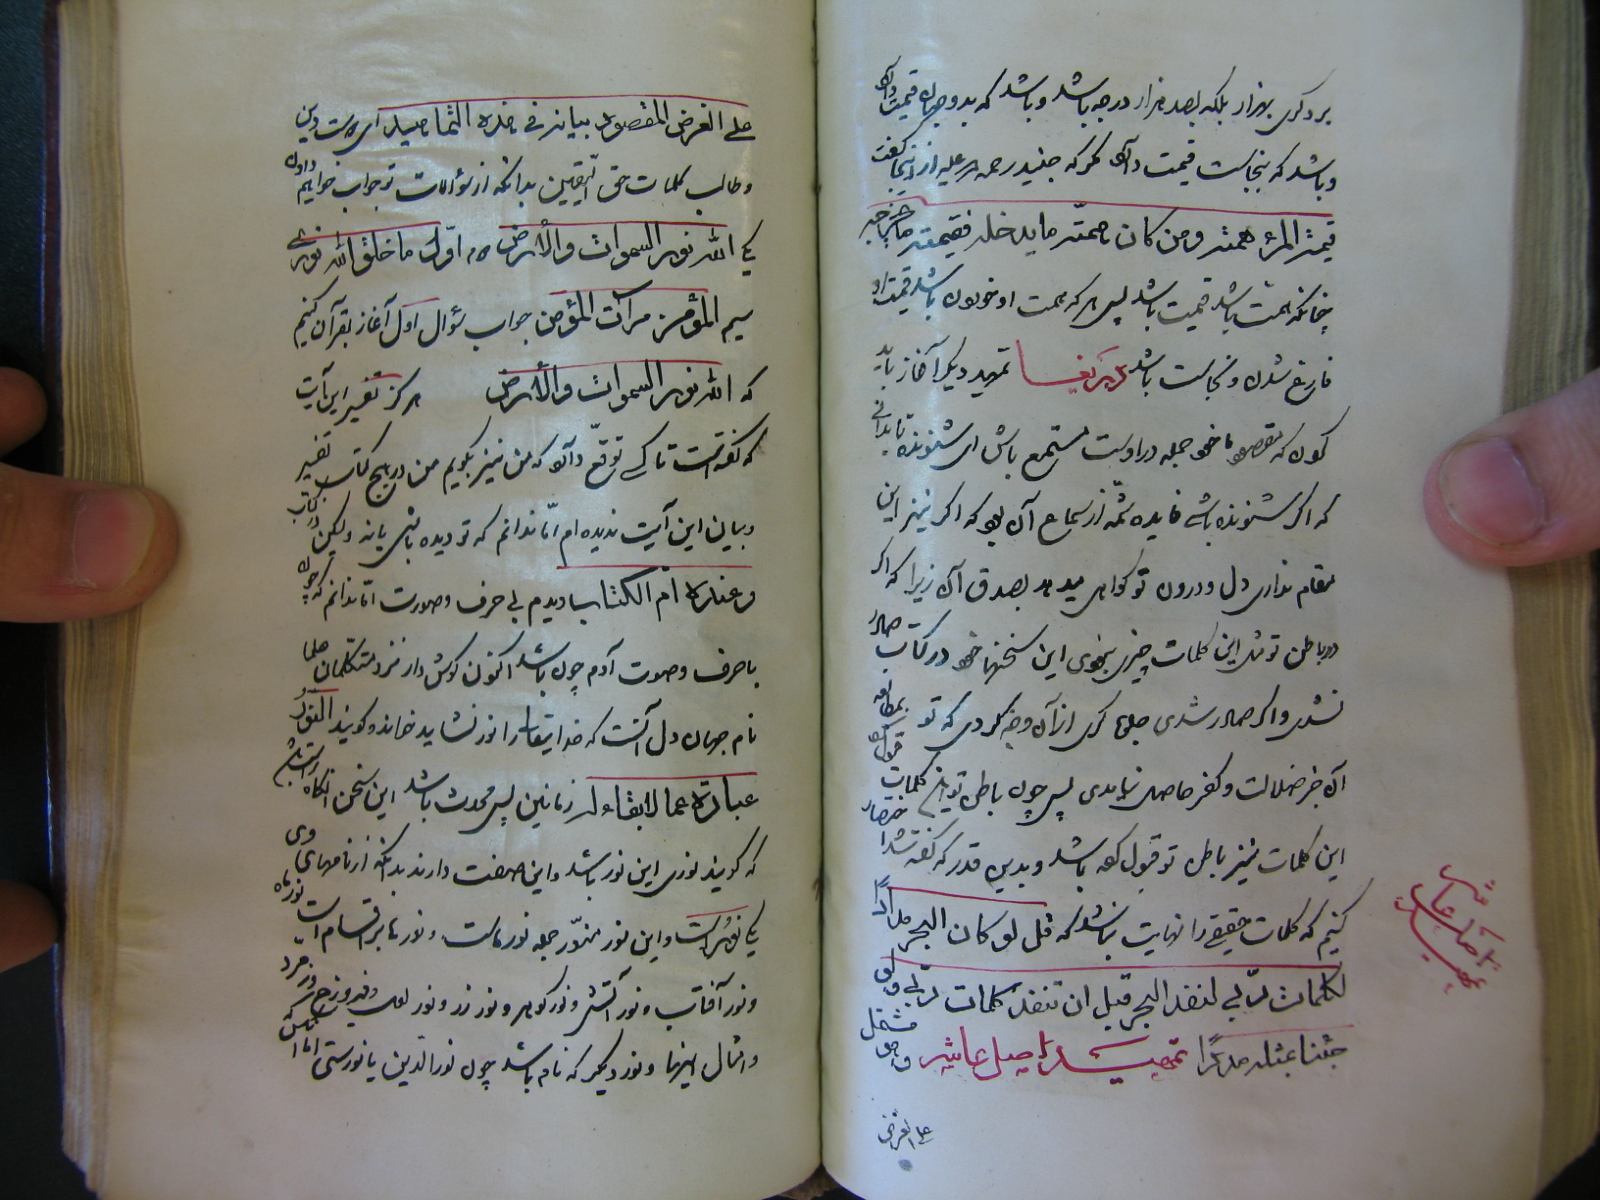 بر دکری بهزار بلکه بصد هزار درجه باشد و باشد که بدو جهان قیمت دارد
و باشد که بنجاست قیمت دارد مگر که جنید رحمه الله علیه از اینجا گفت
قیمة المرء همته ومن کان همته ما یدخله فقیمته ما یخرج
چنانکه همت باشد قیمت باشد پس هر که همت او خوردن باشد قیمت او
فارغ شدن و نجاست باشد تمهید دیگر آغاز باید
کردن که مقصود ما خود جمله در اوست مستمع باش ای شنونده تا بدانی
که اگر شنونده باشی فایده ثمره از سماع آن بود که اگر نیز این
مقام نداری دل و درون تو گواهی میدهد بصدق آن زیرا که اگر
در باطن تو مثل این کلمات چیزی نبودی این سخنها خود در کتاب
نشدی و اگر شدی از آن وجه کردی که تو بمطالعه
آن جز ضلالت و کفر حاصل نیامدی پس چون باطن تو این کلمات قبول
این کلمات نیز باطن تو قبول کرده باشد و بدین قدر که گفته شد اختصار
کنیم که کلمات حقیقی را نهایت نباشد که قل لو کان البحر مدادا
لکلمات ربی لنفد البحر قبل ان تنفد کلمات ربی ولو
جئنا بمثله مددا تمهید اصل عاشر
علی الغرض
تمهید اصل عاشر
علی الغرض المقصود بیانه فی هذه التماهید ای دوست
و طالب کلمات حق الیقین بدانکه از سؤالات تو جواب خواهیم دادن
یکی الله نور السموات والأرض دوم اول ما خلق الله نوری
سیم المؤمن مرآت المؤمن جواب سؤال اول آغاز بقرآن کنیم
که الله نور السموات والأرض هرگز تفسیر این آیت
که گفته است تا کسی توقع دارد که من نیز بگویم من در هیچ کتاب تفسیر
و بیان این آیت ندیده ام اما ندانم که تو دیده باشی یا نه ولیکن در کتاب
وعنده ام الکتاب دیدم بی حرف و صورت اما ندانم که چون
با حرف و صوت آدم چون باشد اکنون گوش دار نزد متکلمان علما
نام جهان دل آنست که خدایتعالی را نور نشاید خواند و گویند النور
عبارة عما لا بقاء له زمانین پس محدث باشد این سخن آنگاه راست باشد
که گویند نوری این نور باشد و این صفت دارند بدانکه از نامهای وی
یکی نور است و این نور منور جمله نورهاست و نورها بر اقسام است نور ماه
و نور آفتاب و نور آتش و نور گوهر و نور زر و نور لعل و فیروزج و زمرد
و امثال اینها و نور دیگر که نام باشد چون نور الدین یا نور ستی